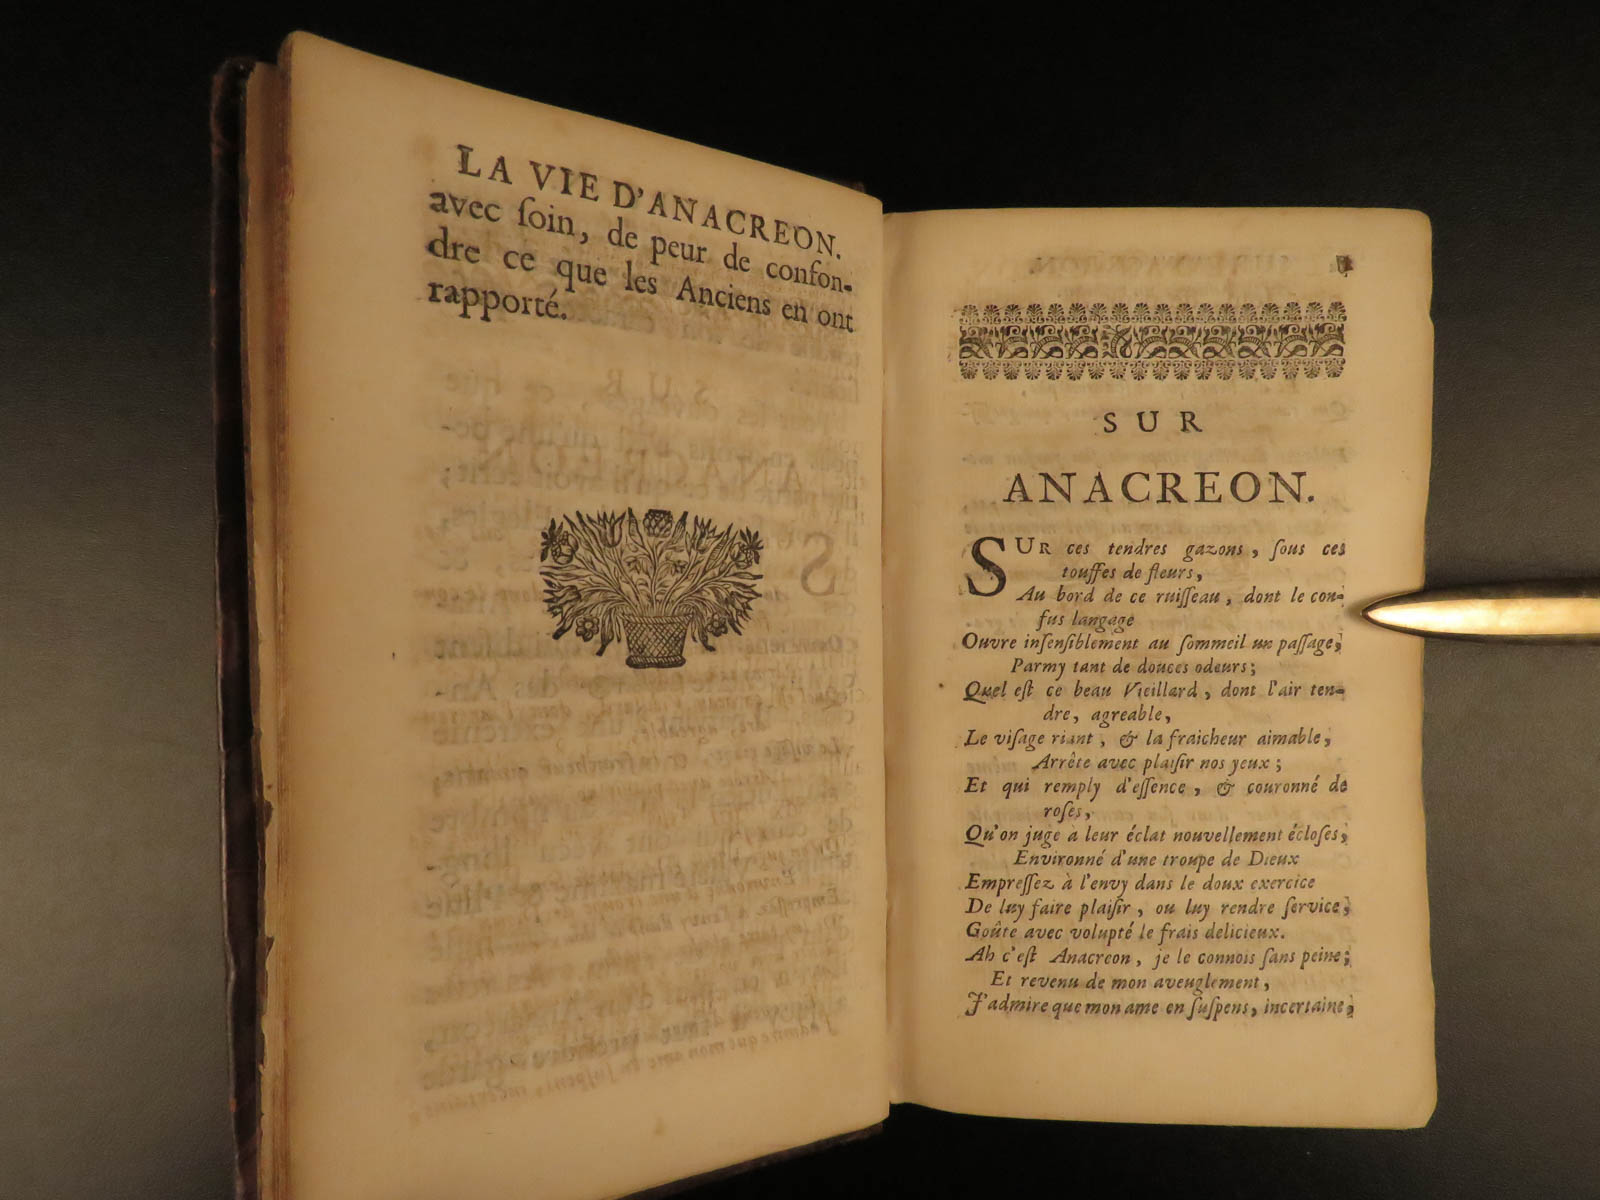 LA VIE D'ANACREON.
avec ſoin, de peur de confon-
dre ce que les Anciens en ont
rapporté.
SUR
ANACREON.
SUR ces tendres gazons, ſous ces
touffes de fleurs,
Au bord de ce ruiſſeau, dont le con-
fus langage
Ouvre inſenſiblement au ſommeil un paſſage,
Parmy tant de douces odeurs;
Quel eſt ce beau Vieillard, dont l'air ten-
dre, agreable,
Le viſage riant, & la fraicheur aimable,
Arrête avec plaiſir nos yeux;
Et qui remply d'eſſence, & couronné de
roſes,
Qu'on juge à leur éclat nouvellement écloſes,
Environné d'une troupe de Dieux
Empreſſez à l'envy dans le doux exercice
De luy faire plaiſir, ou luy rendre ſervice,
Goûte avec volupté le frais delicieux.
Ah c'eſt Anacreon, je le connois ſans peine;
Et revenu de mon aveuglement,
J'admire que mon ame en ſuſpens, incertaine,